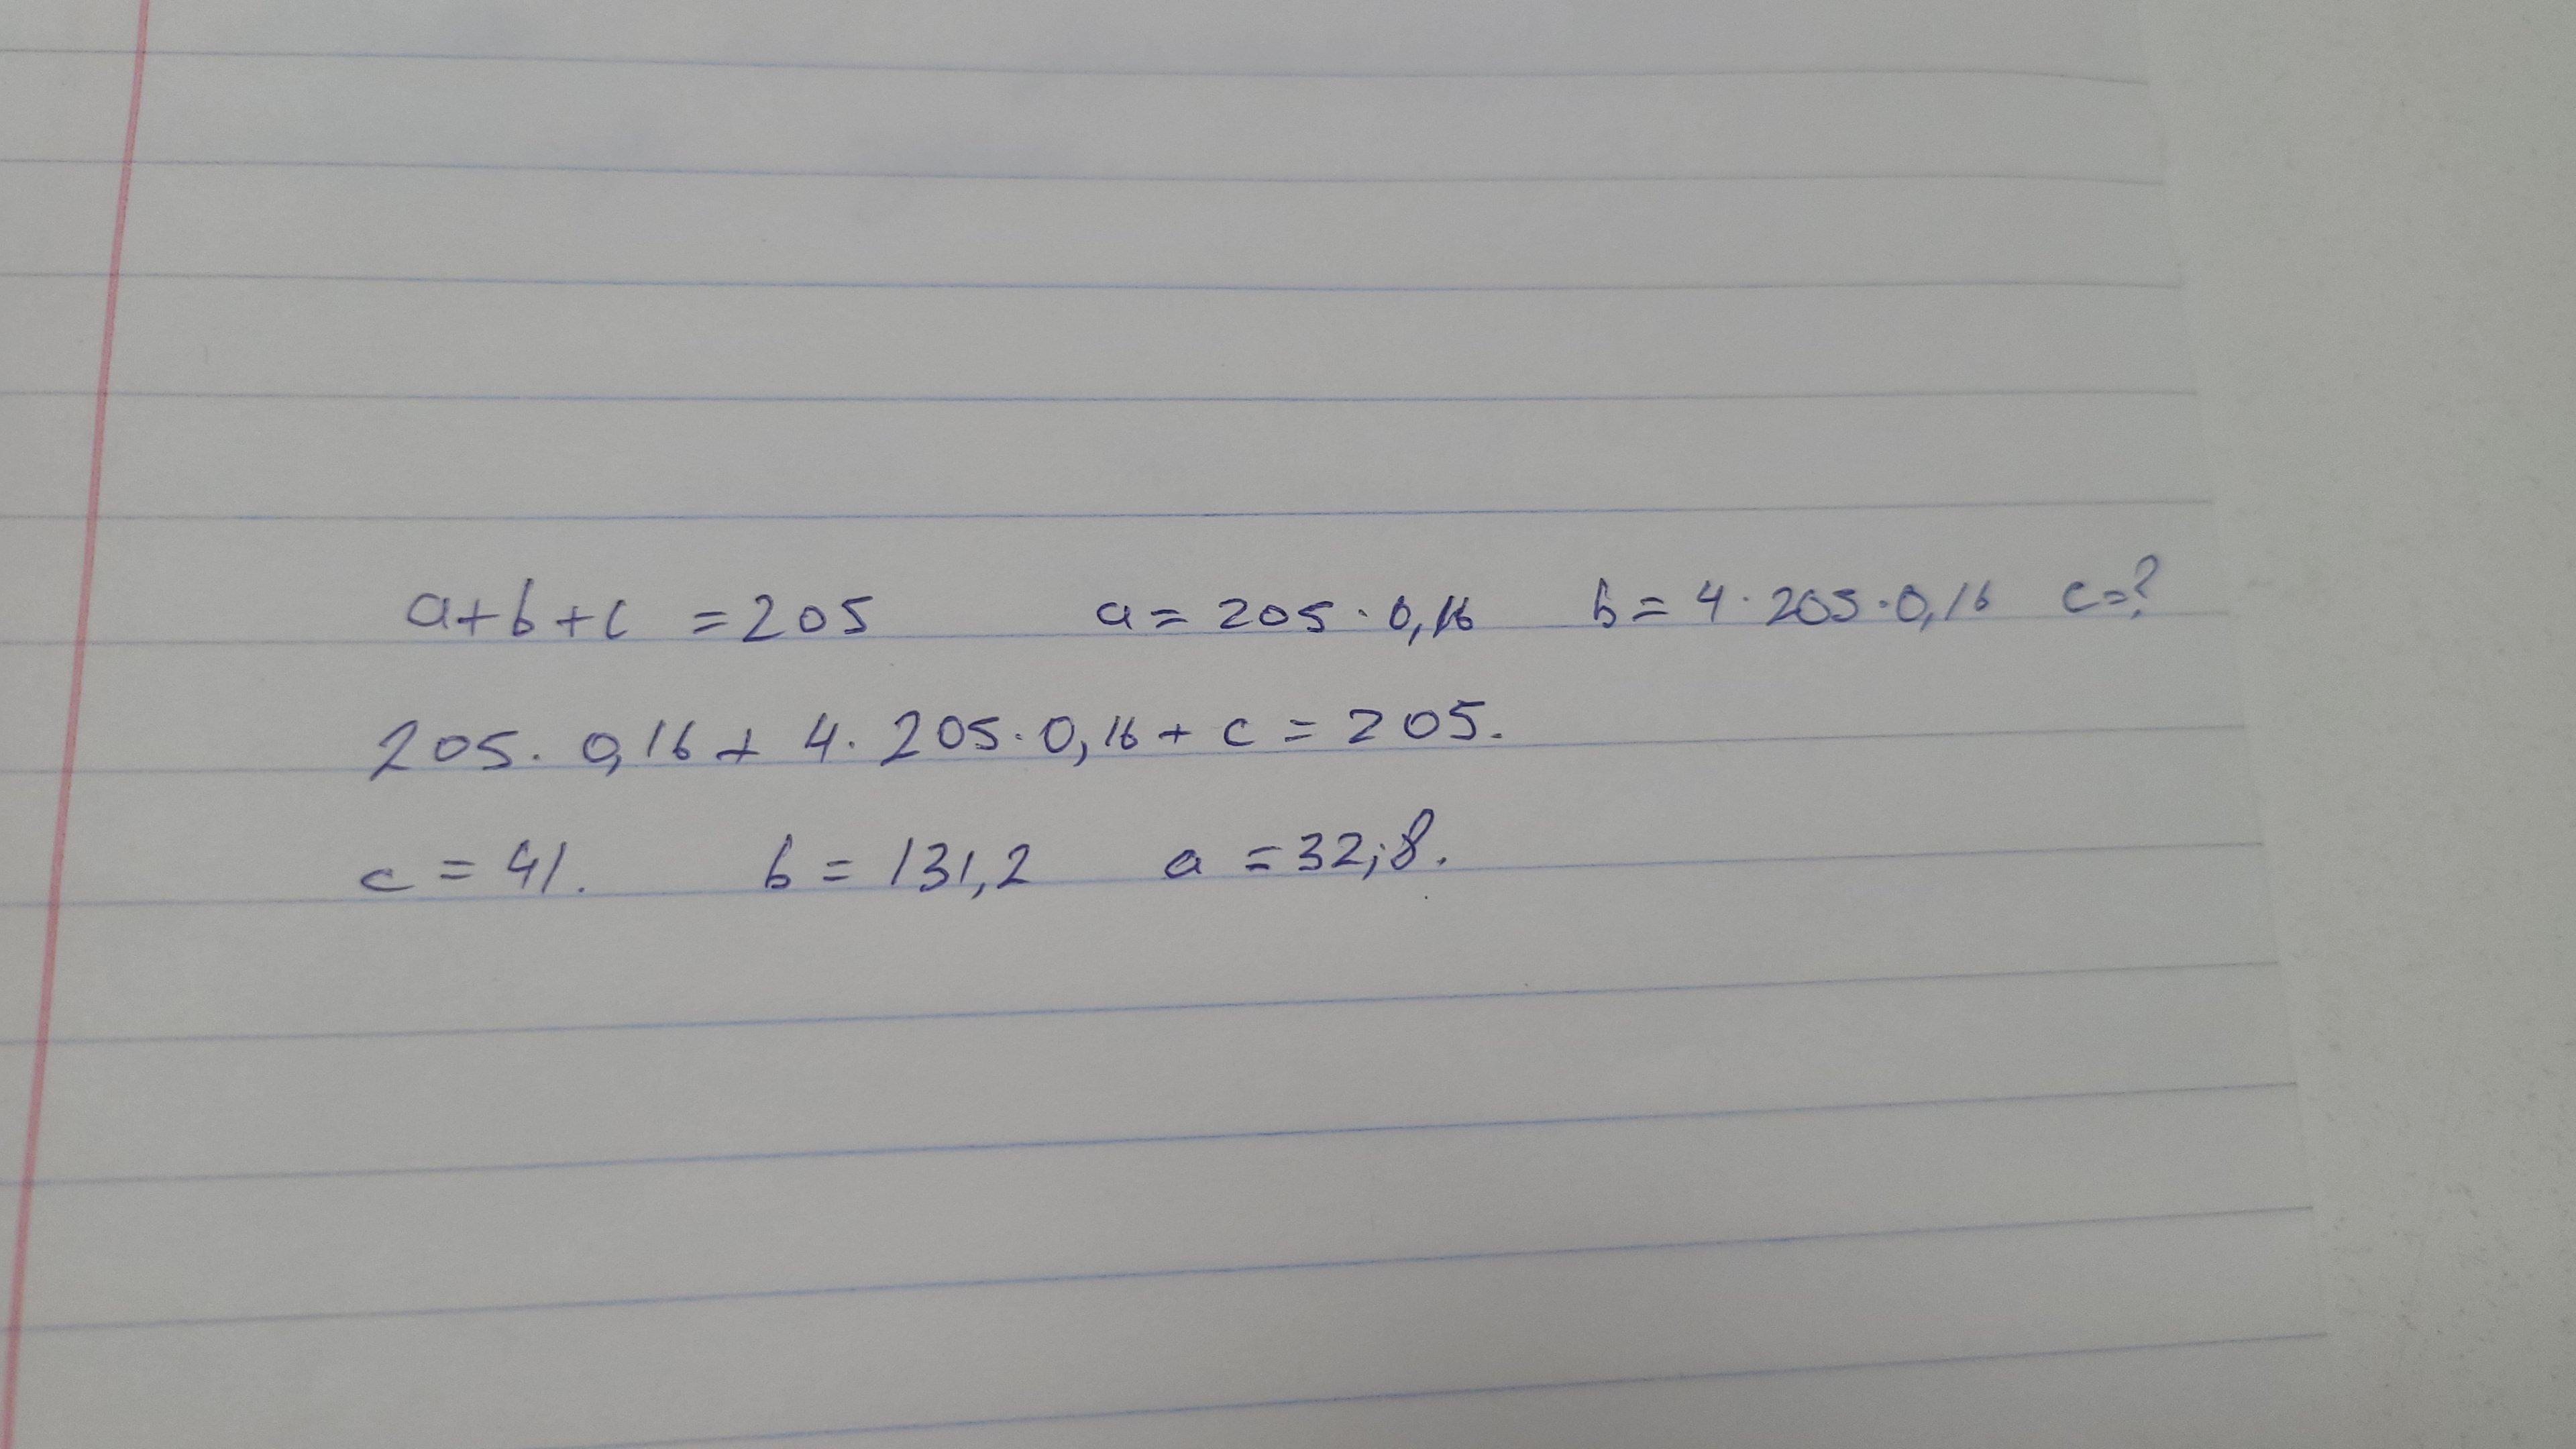 a+b+c = 205 a = 205 · 0,16 b = 4 · 205 · 0,16 c=?
205 · 0,16 + 4 · 205 · 0,16 + c = 205.
c = 41. b = 131,2 a = 32,8.